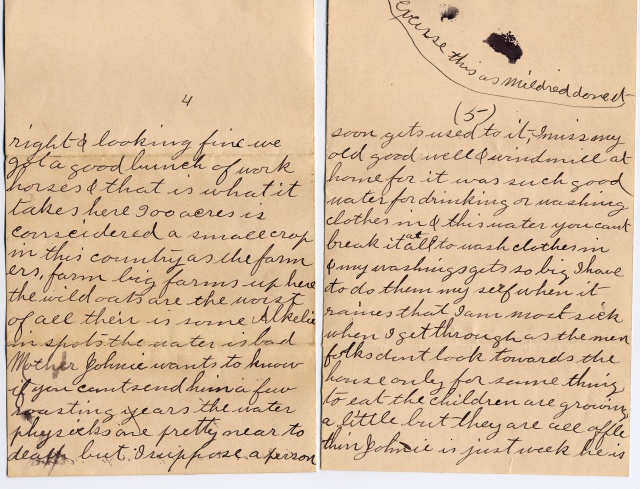 4
right & looking fine we
got a good bunch of work
horses & that is what it
takes here 900 acres is
conscidered a small crop
in this country as the farm
ers, farm big farms up here
the wild oats are the worst
of all their is some Alkelie
in spots the water is bad
Mother Johnie wants to know
if you cant send him a few
roasting years the water
physicks are pretty near to
death but I suppose a person
excuse this as Mildred done it
(5)
soon gets used to it, I miss my
old good well & windmill at
home for it was such good
water for drinking or washing
clothes in & this water you cant
break it at all to wash clothes in
& my washings gets so big I have
to do them my self when it
raines that I am most sick
when I get through as the men
folks dont look towards the
house only for some thing
to eat the children are growing
a little but they are all offle
thin Johnie is just week he is